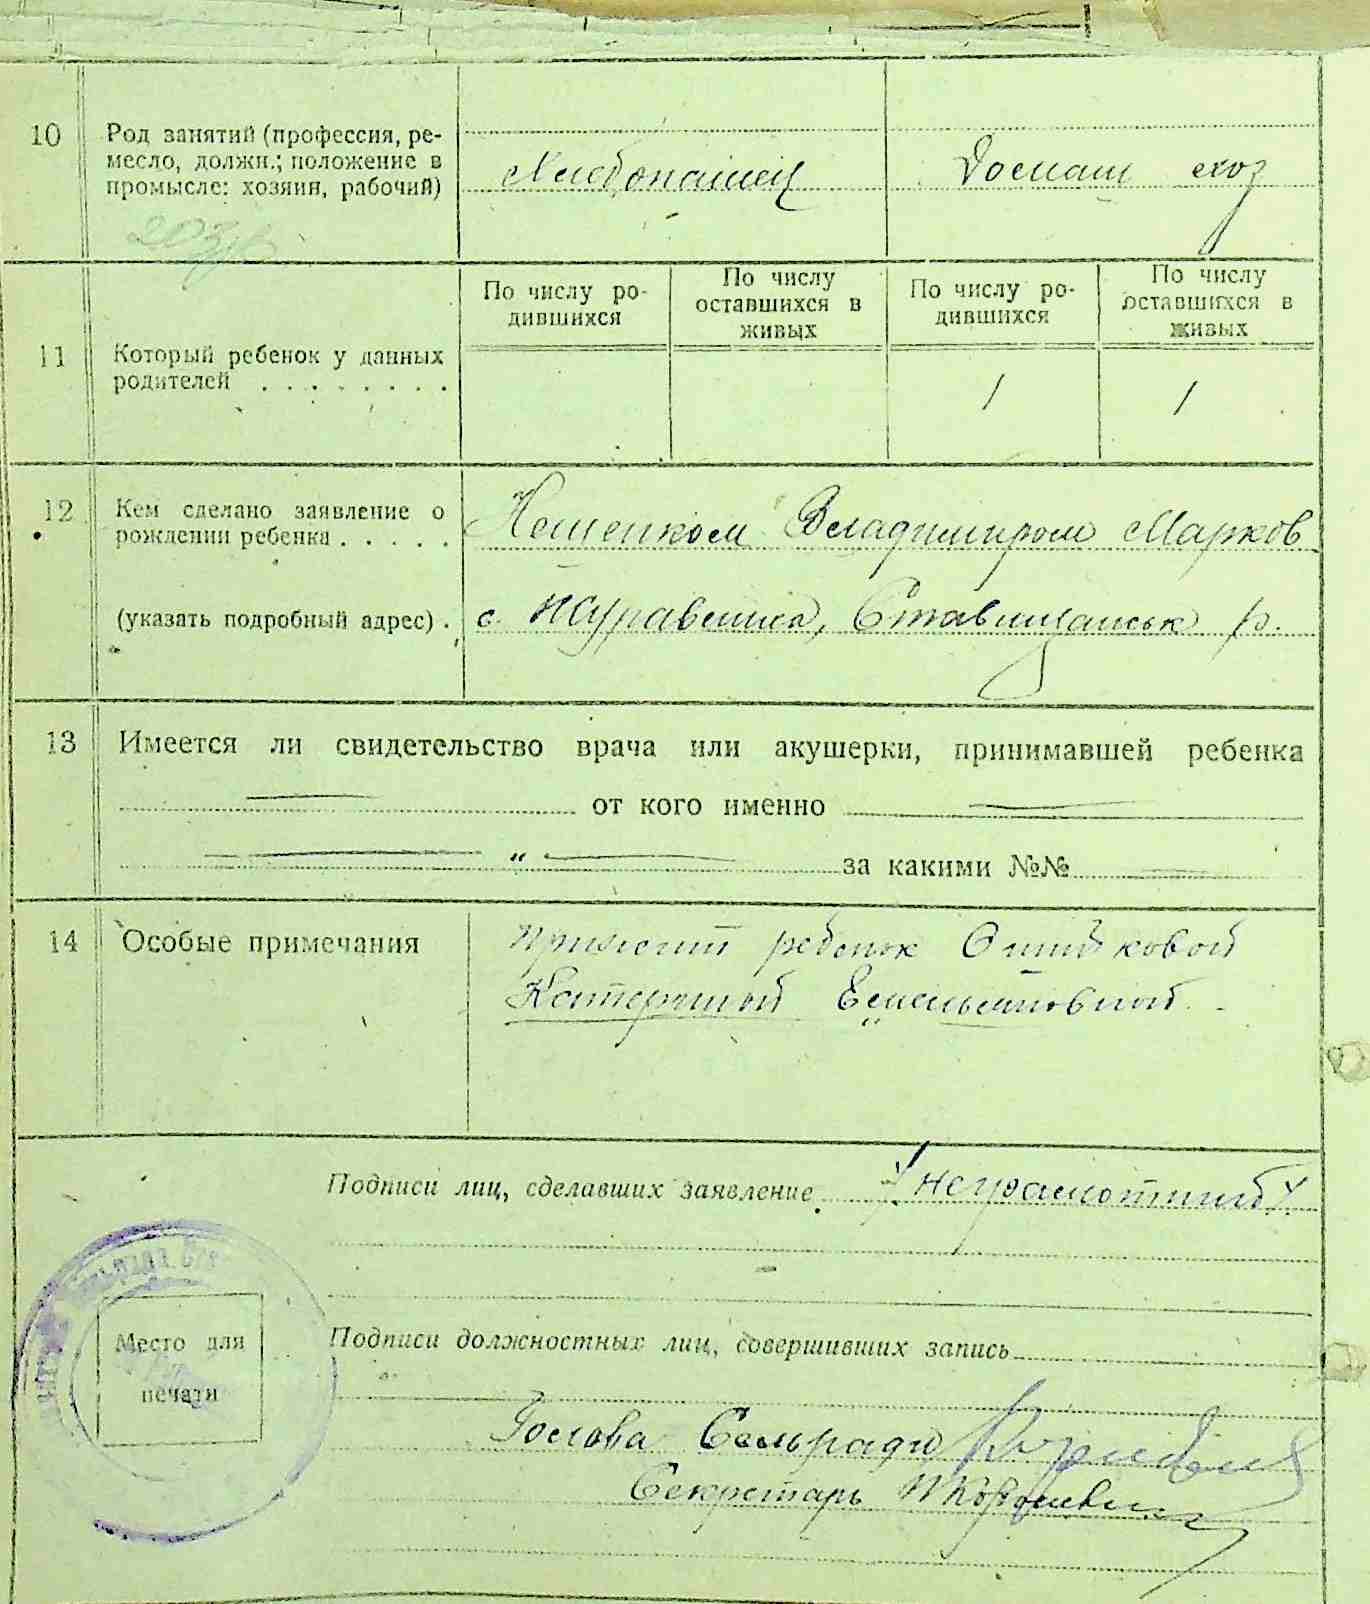 10
Род занятий (профессия, ре-
месло, должн.; положение в
промысле: хозяин, рабочий)
Хлебопашец
Домаш хоз
11
Который ребенок у данных
родителей . . . . . . . .
По числу ро-
дившихся
По числу
оставшихся в
живых
По числу ро-
дившихся
По числу
оставшихся в
живых
1
1
12
Кем сделано заявление о
рождении ребенка . . . . .
(указать подробный адрес) .
Владимиром Марков
с. Журавлиха, Ставищанськ р.
13
Имеется ли свидетельство врача или акушерки, принимавшей ребенка
от кого именно
" за какими №№
14
Особые примечания
ребенок
Катериной Емельяновной
Подписи лиц, сделавших заявление неграмотний
Место для
печати
Подписи должностных лиц, совершивших запись
Голова Сельради
Секретарь